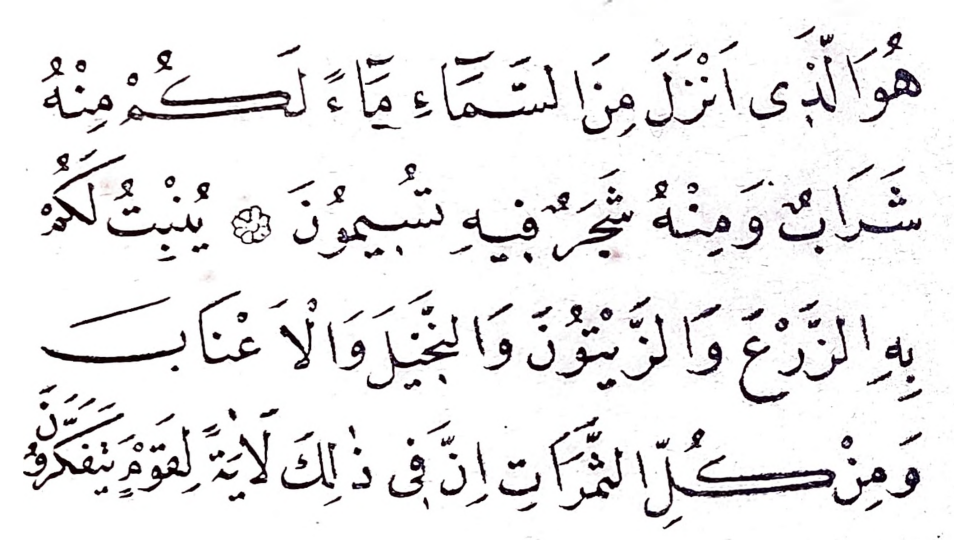 هُوَ الَّذِى اَنْزَلَ مِنَ السَّمَٓاءِ مَٓاءً لَكُمْ مِنْهُ
شَرَابٌ وَمِنْهُ شَجَرٌ فِيهِ تُسِيمُونَ ۞ يُنْبِتُ لَكُمْ
بِهِ الزَّرْعَ وَالزَّيْتُونَ وَالنَّخِيلَ وَالْاَعْنَابَ
وَمِنْ كُلِّ الثَّمَرَاتِ اِنَّ فِى ذٰلِكَ لَاٰيَةً لِقَوْمٍ يَتَفَكَّرُونَ